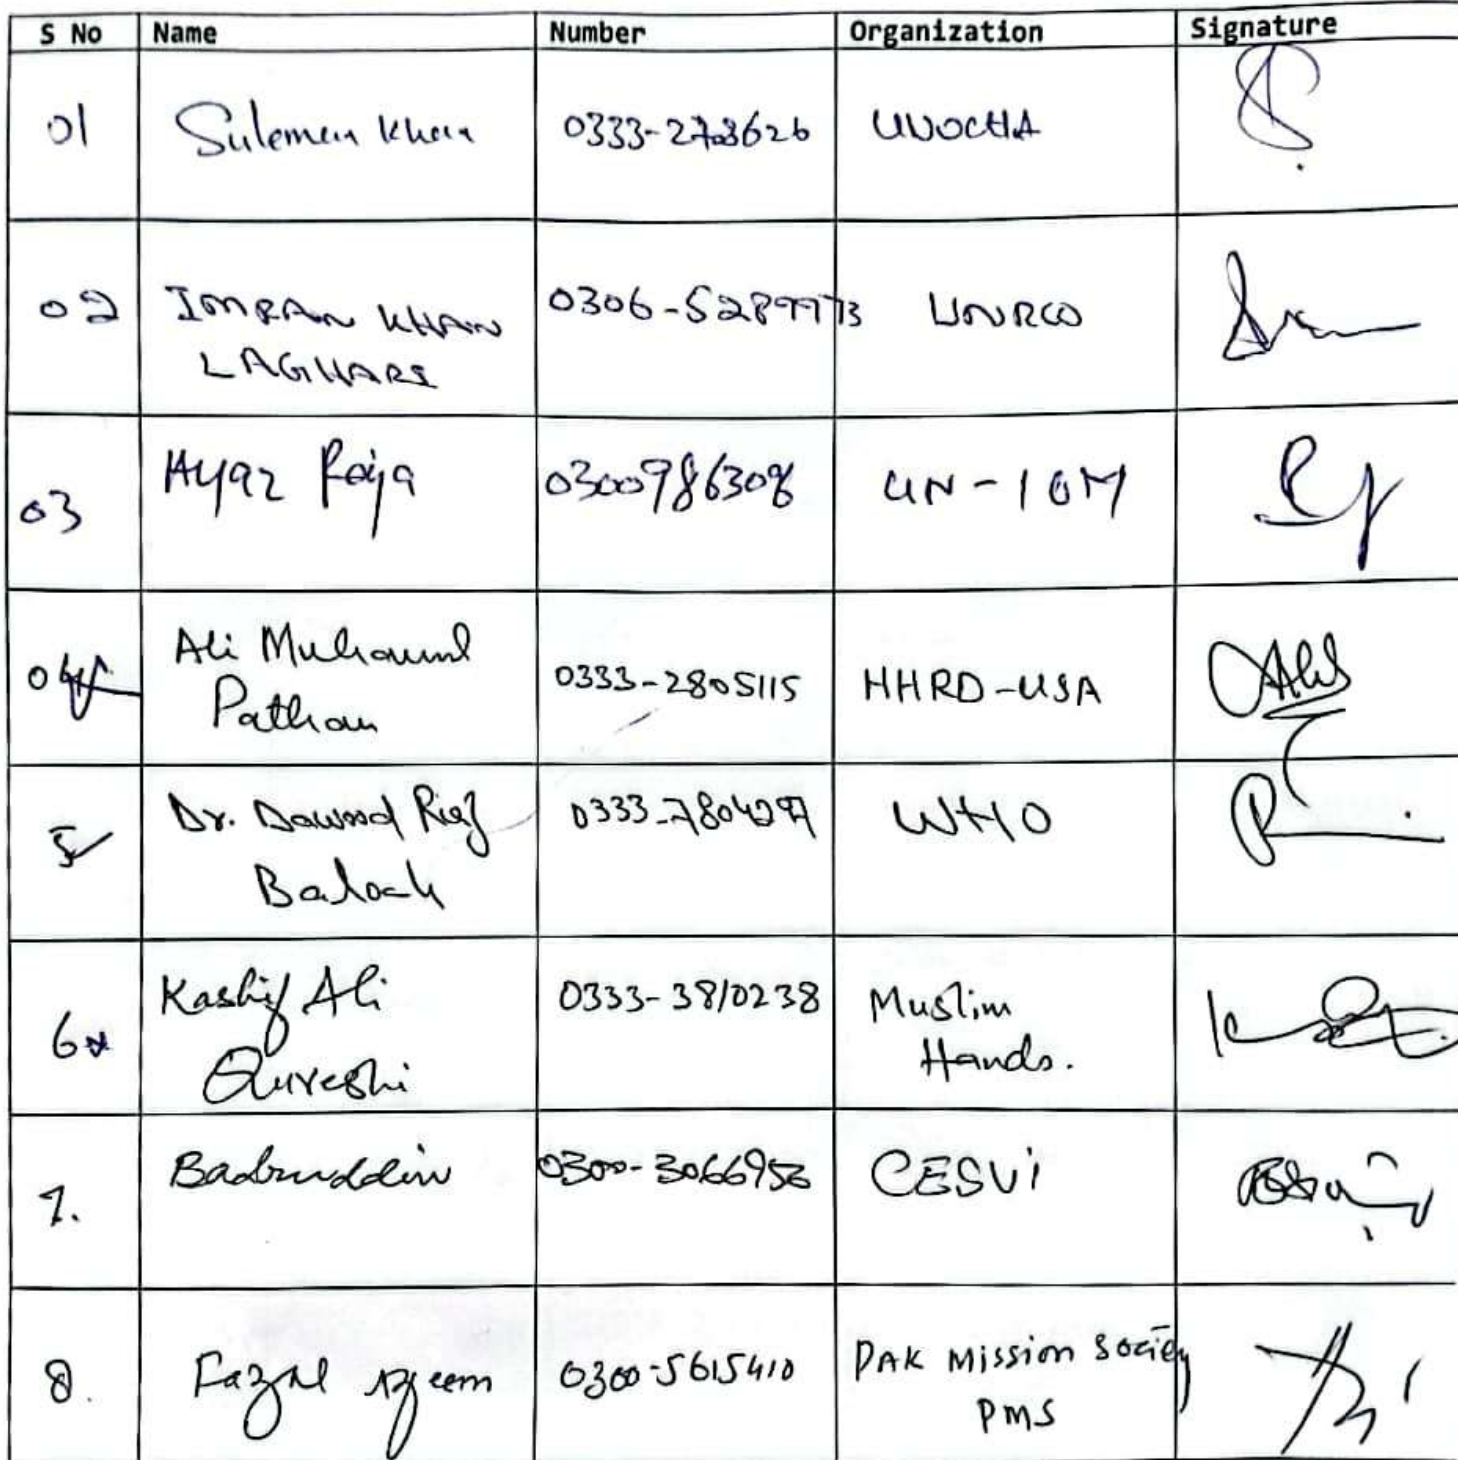 S No Name Number Organization Signature
01 Suleman Khan 0333-2728626 UNOCHA
02 IMRAN KHAN 0306-5289973 UNRCO
LAGHARI
03 Ayaz Raja 0300986308 UN-IOM
04 Ali Muhammad 0333-2805115 HHRD-USA
Pathan
5 Dr. Dawood Riaz 0333-7804297 WHO
Baloch
6 Kashif Ali 0333-3810238 Muslim
Qureshi Hands.
7. Badruddin 0300-3066953 CESVI
8. Fazal Azeem 0300-5615410 PAK Mission Society
PMS